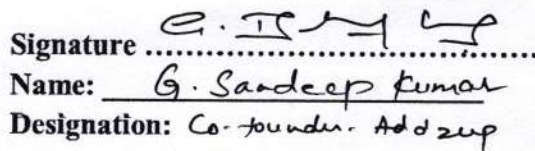 Signature ..............................
Name: G. Sandeep Kumar
Designation: Co-founder. Addzup